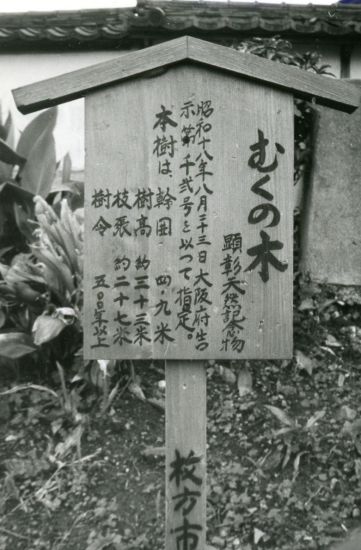 むくの木
顕彰天然記念物
昭和十八年八月二十三日大阪府告
示第千弐号を以つて指定。
本樹は、幹囲 四・九米
樹高 約二十三米
枝張 約二十七米
樹令 五百年以上
枚方市